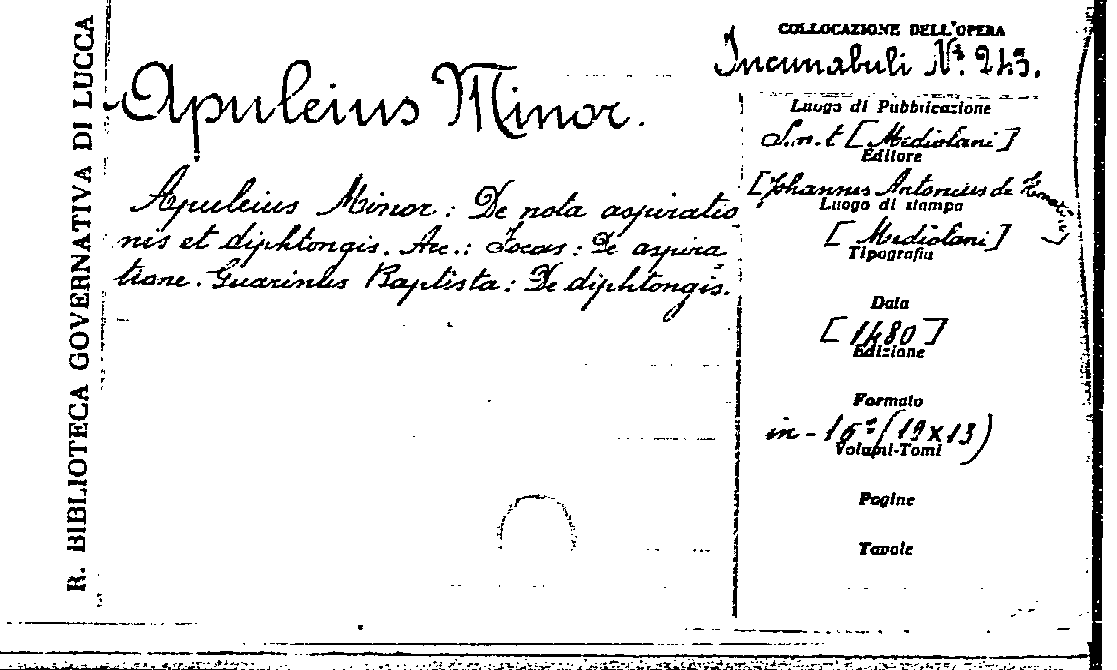 R. BIBLIOTECA GOVERNATIVA DI LUCCA
Apuleius Minor.
Apuleius Minor: De nota aspiratio
nis et diphtongis. Acc.: Focas: De aspira
tione. Guarinus Baptista: De diphtongis.
COLLOCAZIONE DELL'OPERA
Incunabuli N.º 243.
Luogo di Pubblicazione
S.n.t [Mediolani]
Editore
[Johannes Antonius de
Luogo di stampa
[Mediolani]
Tipografia
Data
[1480]
Edizione
Formato
in-16º (19x13)
Volumi-Tomi
Pagine
Tavole